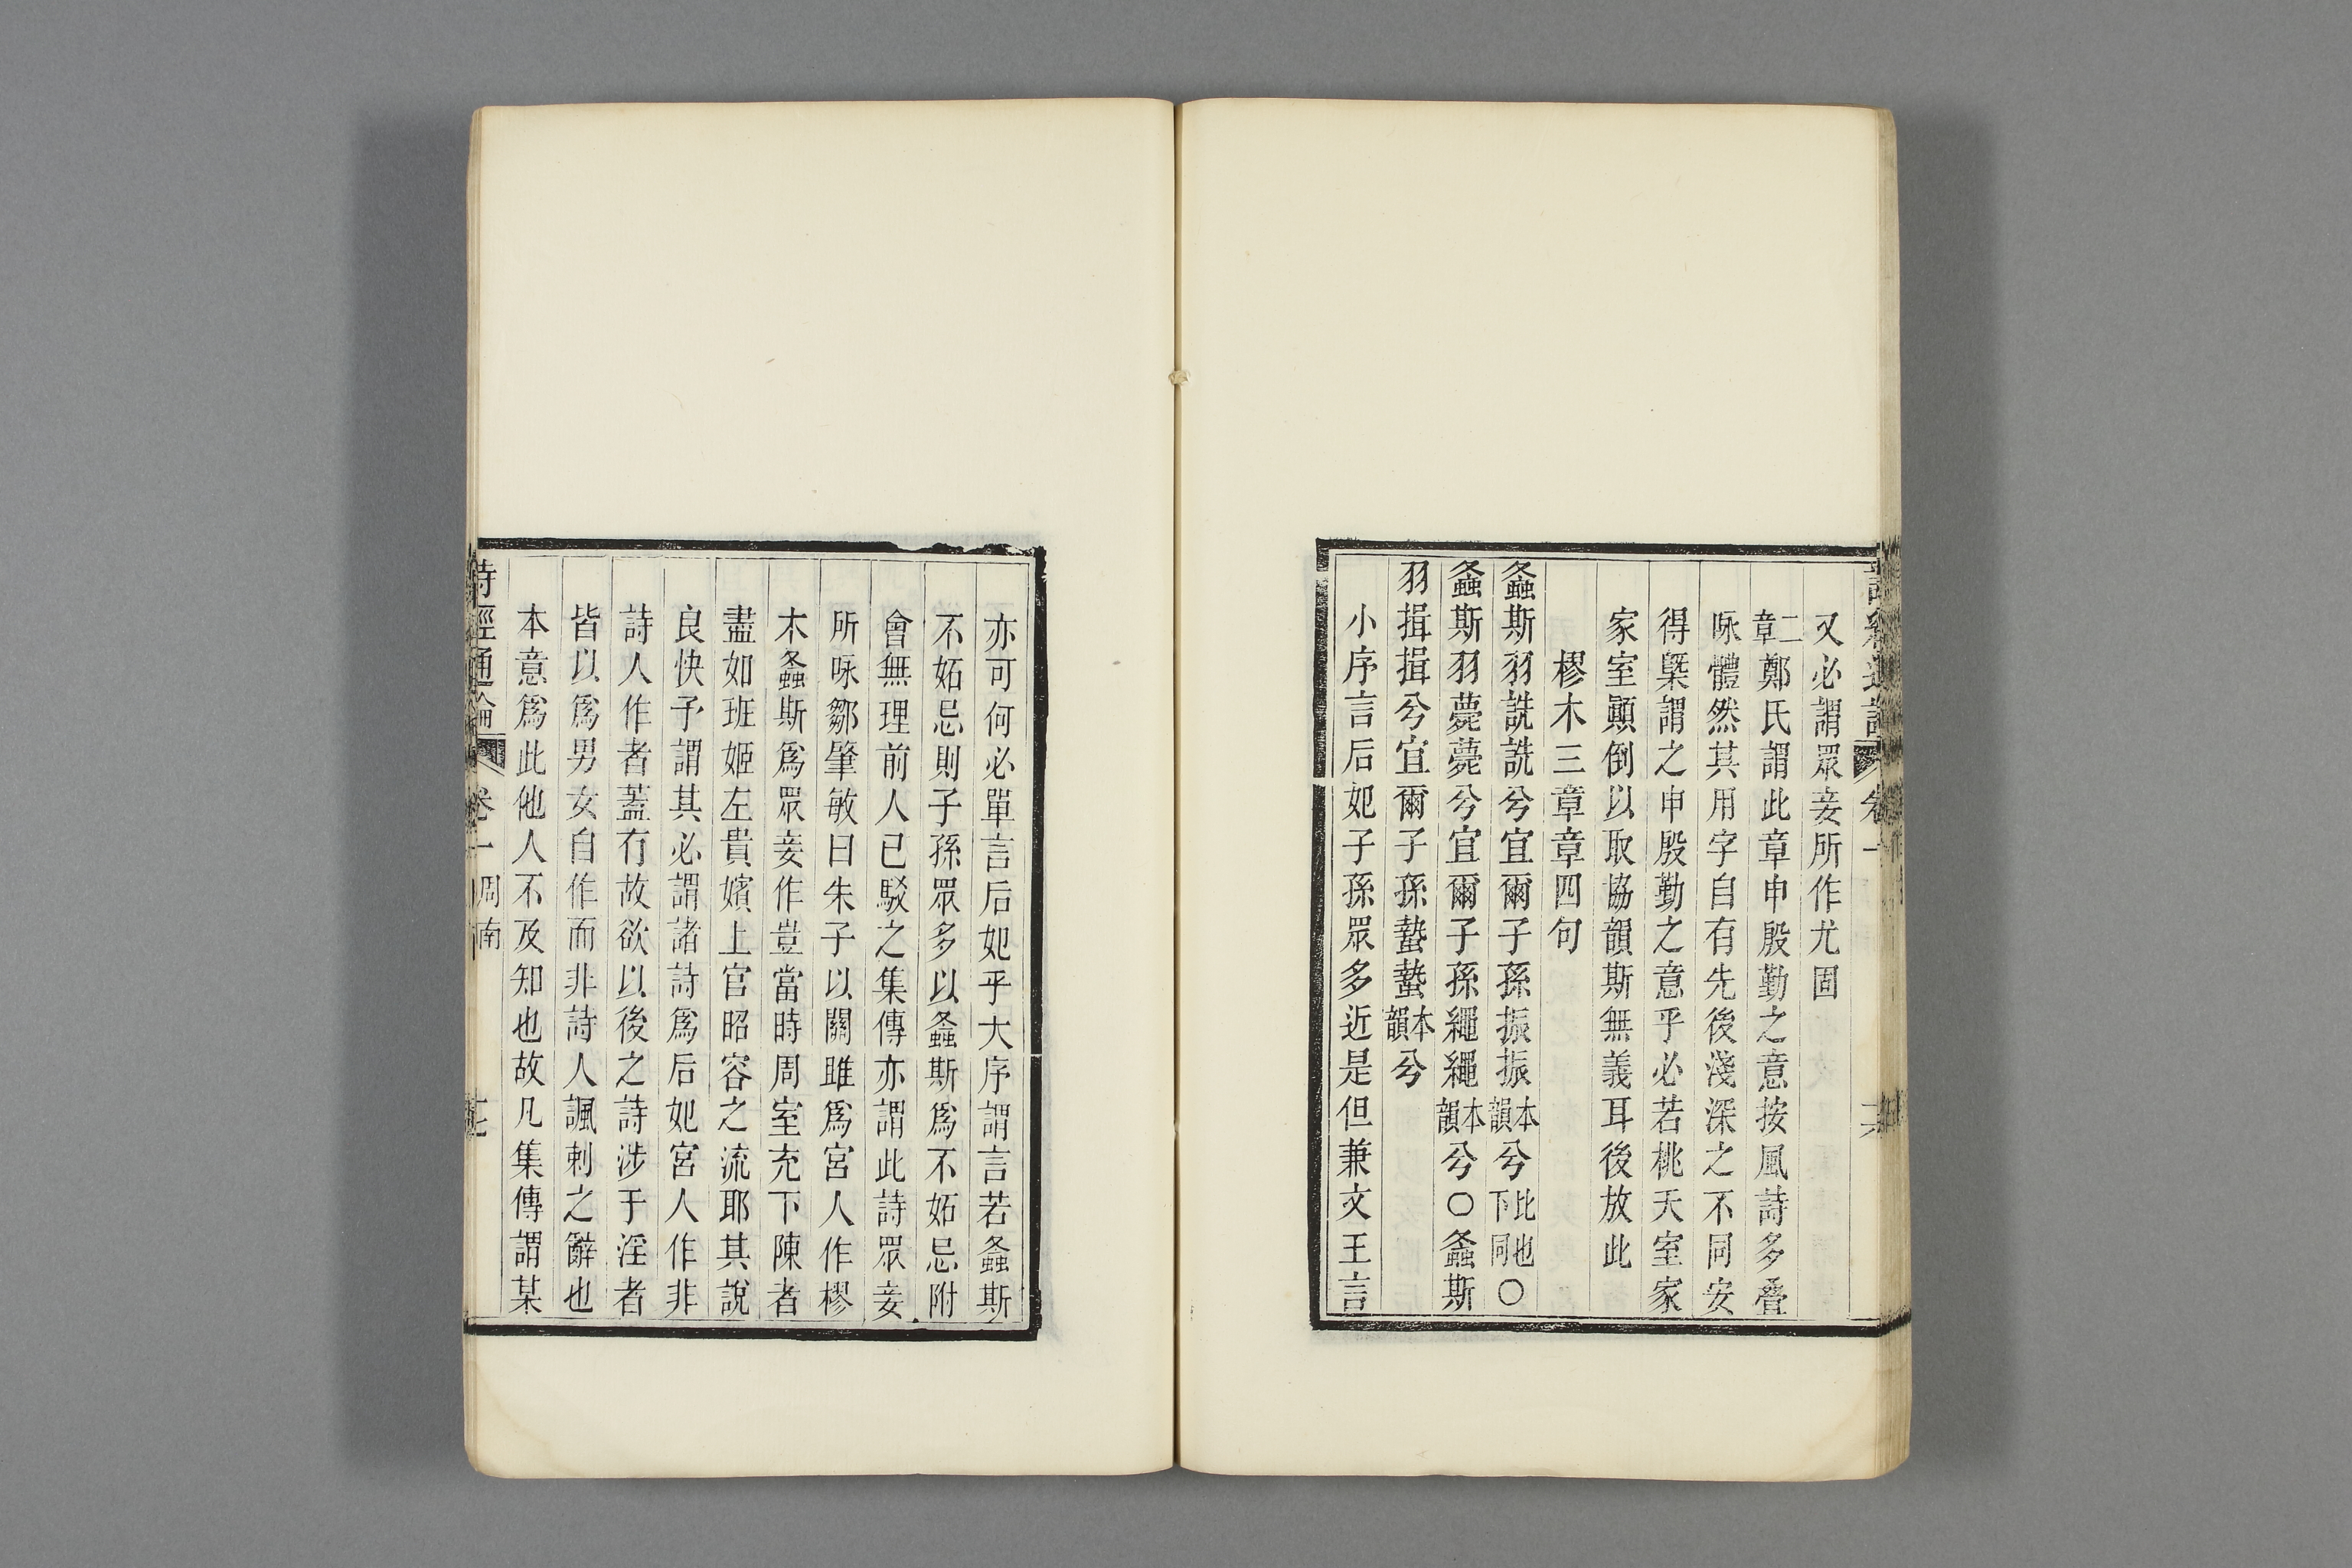 又必謂眾妾所作尤固
二章鄭氏謂此章申殷勤之意按風詩多疊
咏體然其用字自有先後淺深之不同安
得槩謂之申殷勤之意乎必若桃夭室家
家室顚倒以取協韻斯無義耳後放此
樛木三章章四句
螽斯羽詵詵兮宜爾子孫振振本韻兮比也下同○
螽斯羽薨薨兮宜爾子孫繩繩本韻兮○螽斯
羽揖揖兮宜爾子孫蟄蟄本韻兮
小序言后妃子孫眾多近是但兼文王言
亦可何必單言后妃乎大序謂言若螽斯
不妬忌則子孫眾多以螽斯爲不妬忌附
會無理前人已駁之集傳亦謂此詩眾妾
所咏鄒肇敏曰朱子以關雎爲宮人作樛
木螽斯爲眾妾作豈當時周室充下陳者
盡如班姬左貴嬪上官昭容之流耶其說
良快予謂其必謂諸詩爲后妃宮人作非
詩人作者蓋有故欲以後之詩涉于淫者
皆以爲男女自作而非詩人諷刺之辭也
本意爲此他人不及知也故凡集傳謂某
詩經通論 卷一 周南